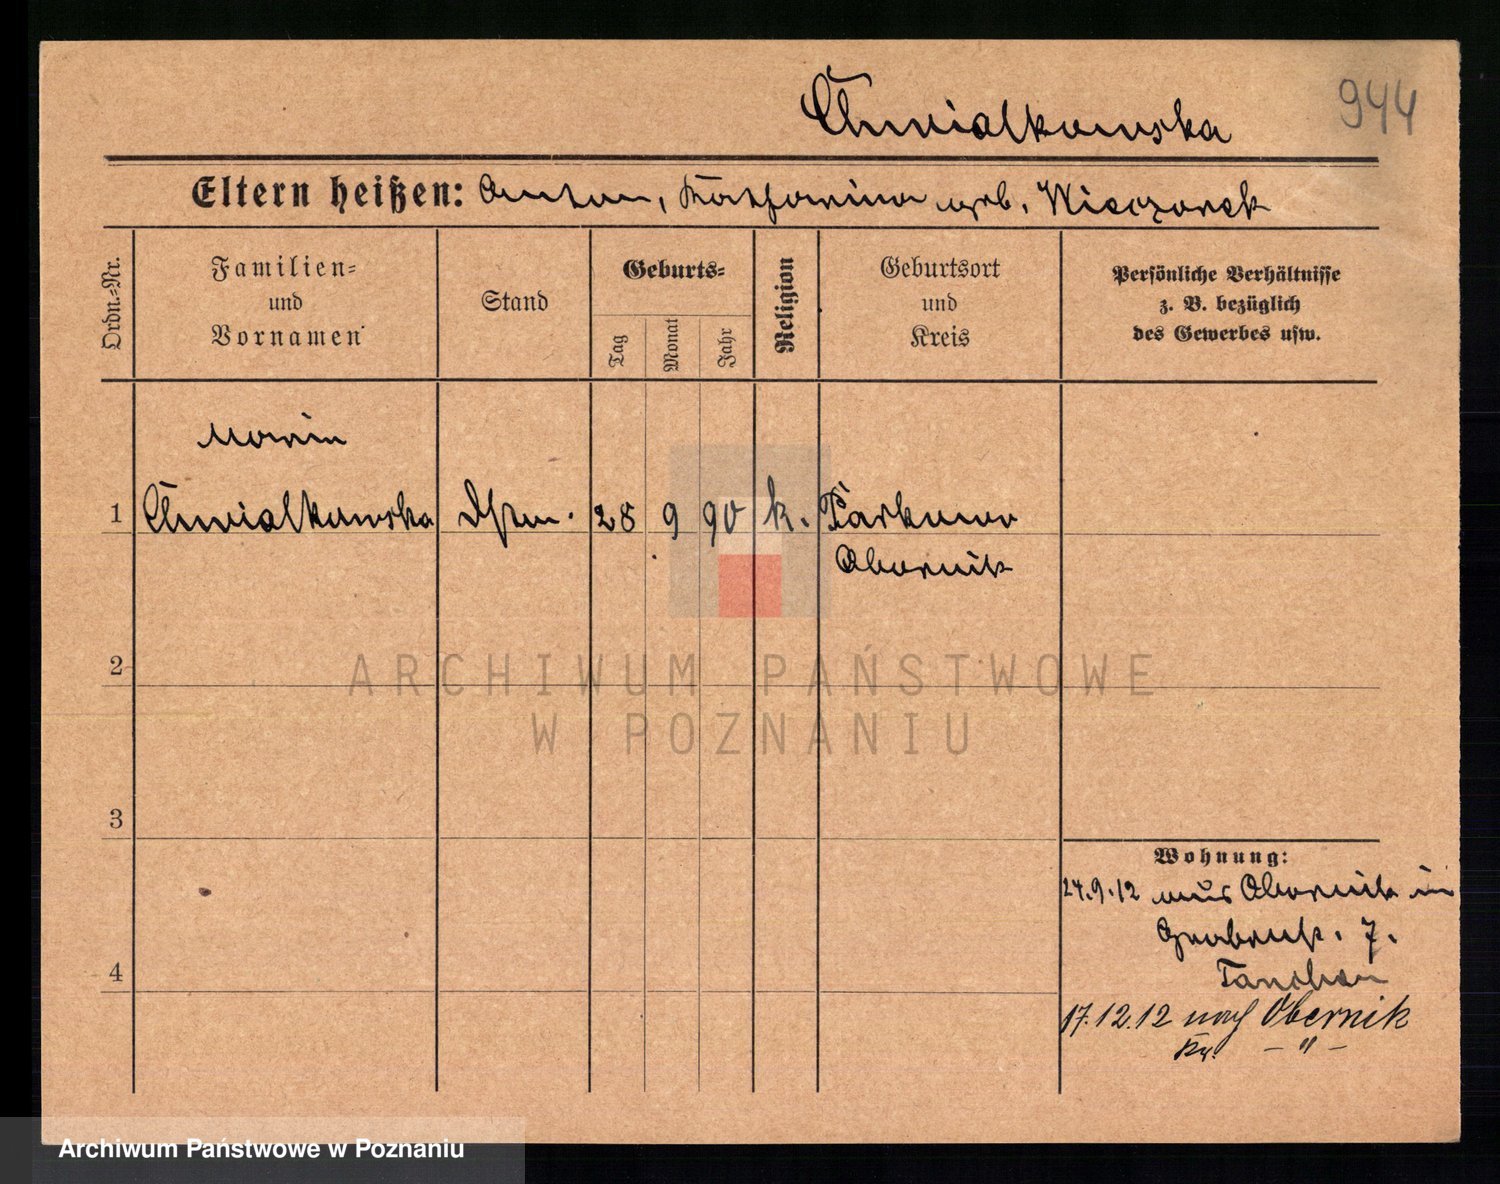 Chwialkowska
944
Eltern heißen: Anton, Katharina geb. Wieczorek
Ordn.-Nr.
Familien-
und
Vornamen
Stand
Geburts-
Tag
Monat
Jahr
Religion
Geburtsort
und
Kreis
Persönliche Verhältnisse
z. B. bezüglich
des Gewerbes usw.
Marie
1 Chwialkowska 28 9 90 k. Parkowo
Obornik
ARCHIWUM PAŃSTWOWE
W POZNANIU
2
3
4
Wohnung:
24.9.12 aus Obornik in
7.
17.12.12 nach Obernik
Kr. - " -
Archiwum Państwowe w Poznaniu